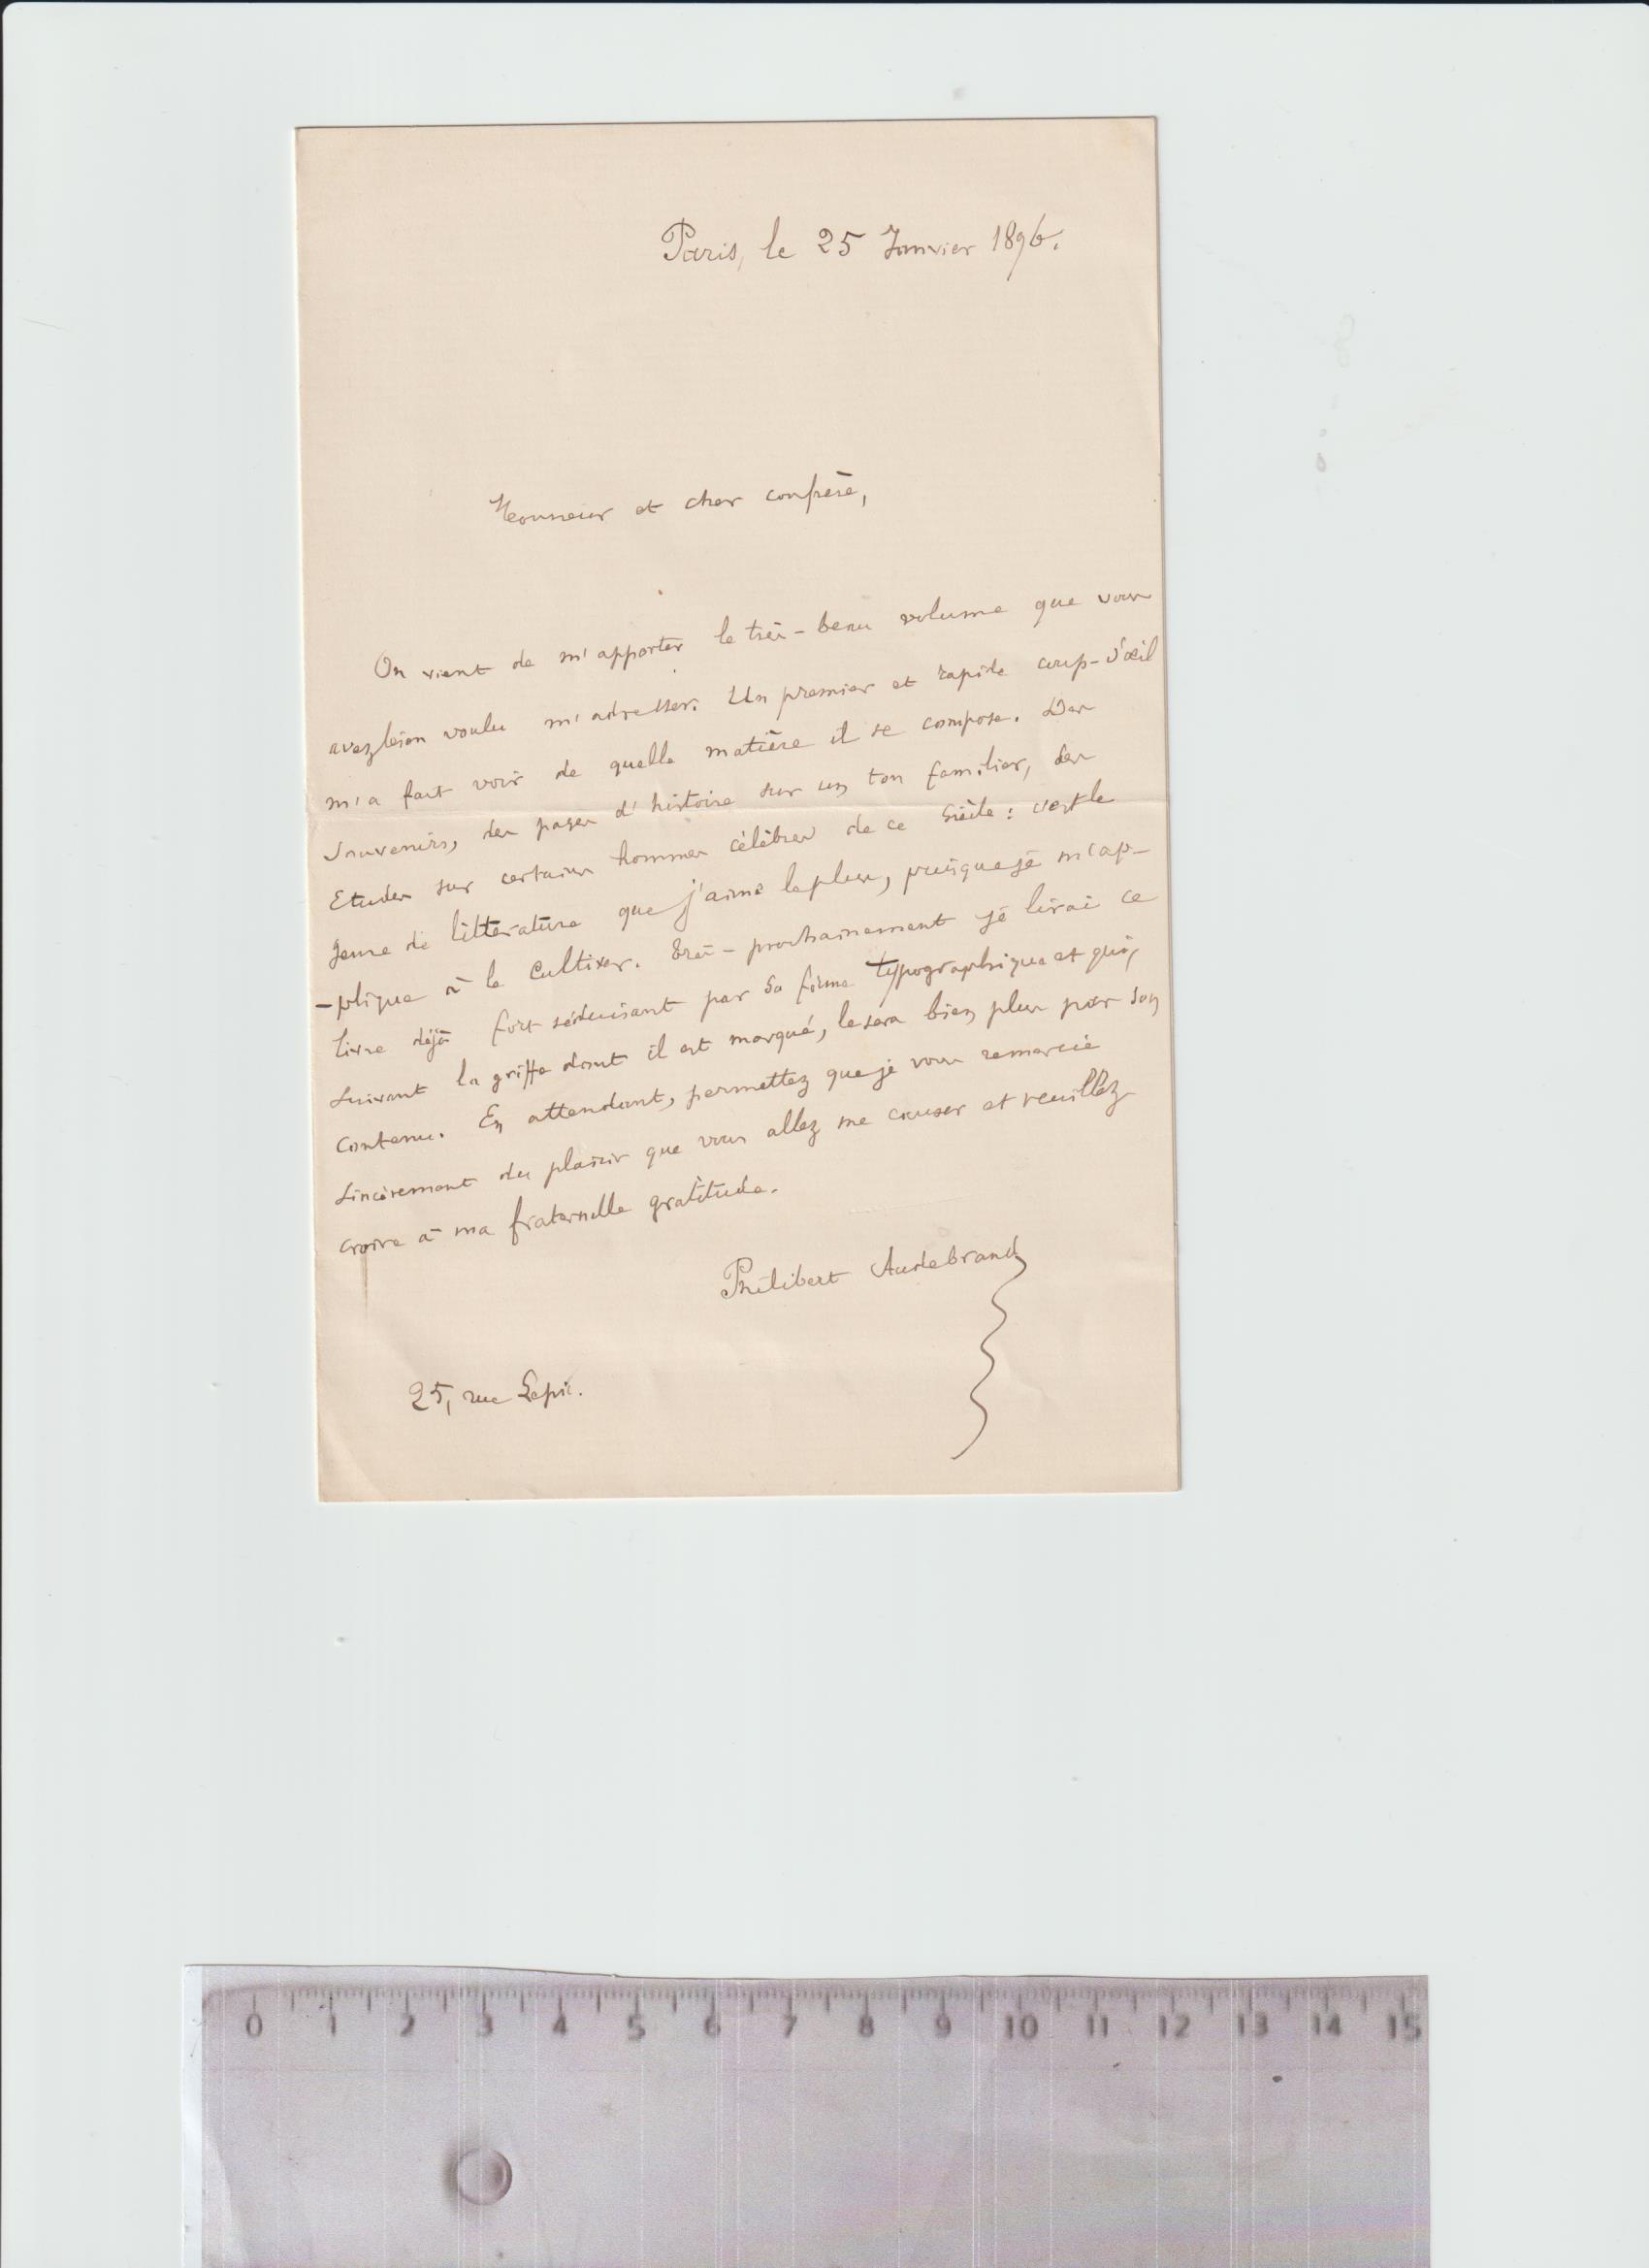 Paris, le 25 Janvier 1896.
Monsieur et cher confrère,
On vient de m'apporter le très-beau volume que vous
avez bien voulu m'adresser. Un premier et rapide coup-d'œil
m'a fait voir de quelle matière il se compose. Des
souvenirs, des pages d'histoire sur un ton familier, des
Etudes sur certains hommes célèbres de ce siècle : c'est le
genre de littérature que j'aime le plus, puisque je m'ap-
-plique à le cultiver. Très-prochainement je lirai ce
livre déjà fort séduisant par sa forme typographique et qui,
suivant la griffe dont il est marqué, le sera bien plus par son
contenu. En attendant, permettez que je vous remercie
sincèrement du plaisir que vous allez me causer et veuillez
croire à ma fraternelle gratitude.
Philibert Audebrand
25, rue Lepic.
0 1 2 3 4 5 6 7 8 9 10 11 12 13 14 15